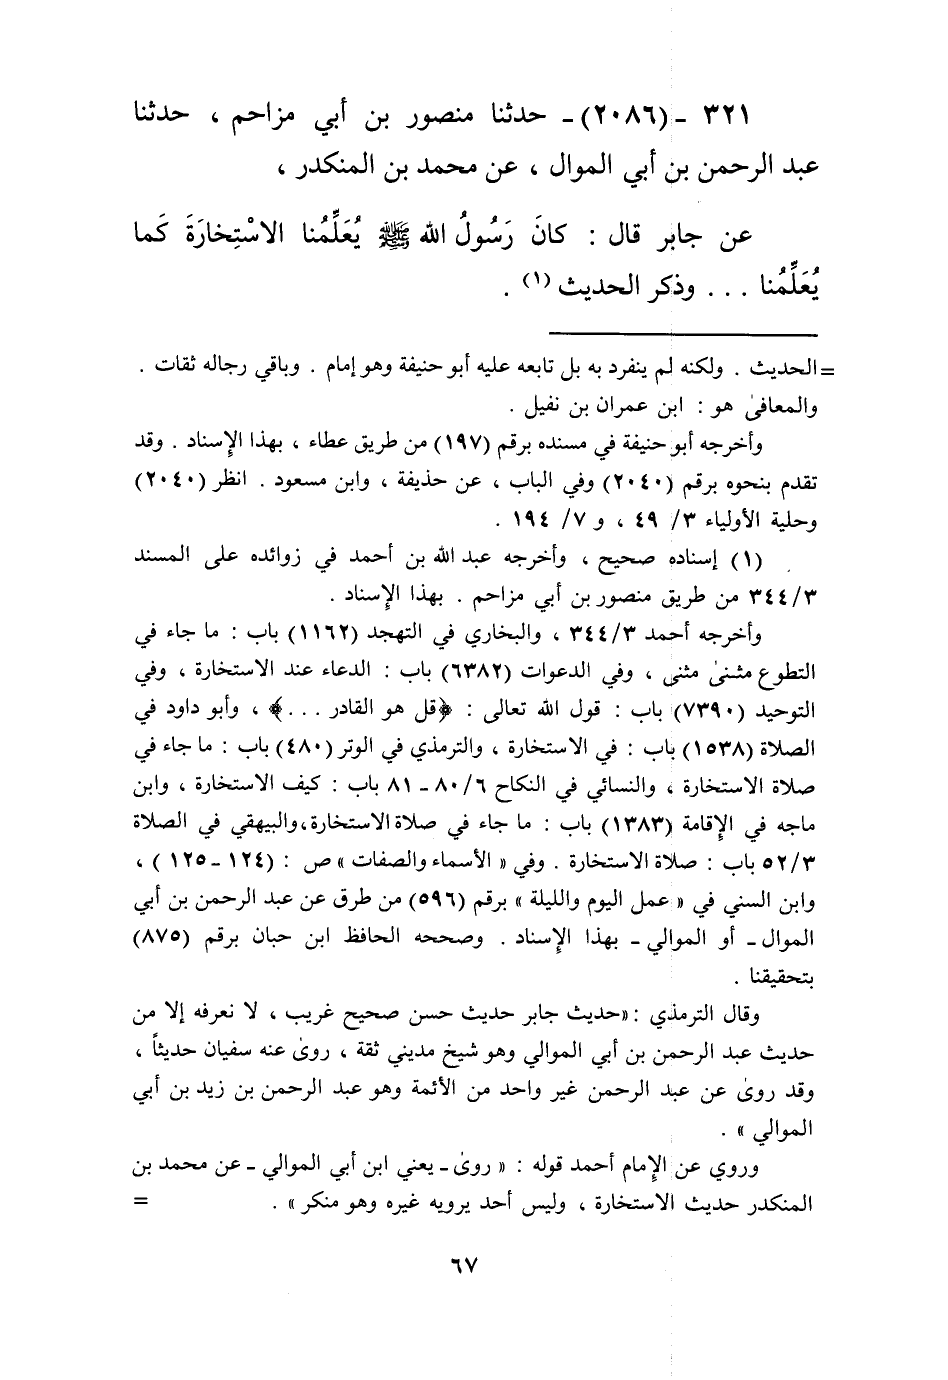 ٣٢١ ـ (٢٠٨٦) ـ حدثنا منصور بن أبي مزاحم ، حدثنا
عبد الرحمن بن أبي الموال ، عن محمد بن المنكدر ،
عن جابر قال : كانَ رَسُولُ الله ﷺ يُعَلِّمُنا الاسْتِخارَةَ كَما
يُعَلِّمُنا . . . وذكر الحديث (١) .
=الحديث . ولكنه لم ينفرد به بل تابعه عليه أبو حنيفة وهو إمام . وباقي رجاله ثقات .
والمعافىٰ هو : ابن عمران بن نفيل .
وأخرجه أبو حنيفة في مسنده برقم (١٩٧) من طريق عطاء ، بهذا الإسناد . وقد
تقدم بنحوه برقم (٢٠٤٠) وفي الباب ، عن حذيفة ، وابن مسعود . انظر (٢٠٤٠)
وحلية الأولياء ٣/ ٤٩ ، و ٧/ ١٩٤ .
(١) إسناده صحيح ، وأخرجه عبد الله بن أحمد في زوائده على المسند
٣٤٤/٣ من طريق منصور بن أبي مزاحم . بهذا الإسناد .
وأخرجه أحمد ٣٤٤/٣ ، والبخاري في التهجد (١١٦٢) باب : ما جاء في
التطوع مثنىٰ مثنى ، وفي الدعوات (٦٣٨٢) باب : الدعاء عند الاستخارة ، وفي
التوحيد (٧٣٩٠) باب : قول الله تعالى : ﴿قل هو القادر . . .﴾ ، وأبو داود في
الصلاة (١٥٣٨) باب : في الاستخارة ، والترمذي في الوتر (٤٨٠) باب : ما جاء في
صلاة الاستخارة ، والنسائي في النكاح ٨٠/٦ ـ ٨١ باب : كيف الاستخارة ، وابن
ماجه في الإقامة (١٣٨٣) باب : ما جاء في صلاة الاستخارة،والبيهقي في الصلاة
٥٢/٣ باب : صلاة الاستخارة . وفي « الأسماء والصفات » ص : (١٢٤ ـ ١٢٥ ) ،
وابن السني في « عمل اليوم والليلة » برقم (٥٩٦) من طرق عن عبد الرحمن بن أبي
الموال ـ أو الموالي ـ بهذا الإسناد . وصححه الحافظ ابن حبان برقم (٨٧٥)
بتحقيقنا .
وقال الترمذي :«حديث جابر حديث حسن صحيح غريب ، لا نعرفه إلا من
حديث عبد الرحمن بن أبي الموالي وهو شيخ مديني ثقة ، روىٰ عنه سفيان حديثاً ،
وقد روىٰ عن عبد الرحمن غير واحد من الأئمة وهو عبد الرحمن بن زيد بن أبي
الموالي » .
وروي عن الإمام أحمد قوله : « روىٰ ـ يعني ابن أبي الموالي ـ عن محمد بن
المنكدر حديث الاستخارة ، وليس أحد يرويه غيره وهو منكر » . =
٦٧